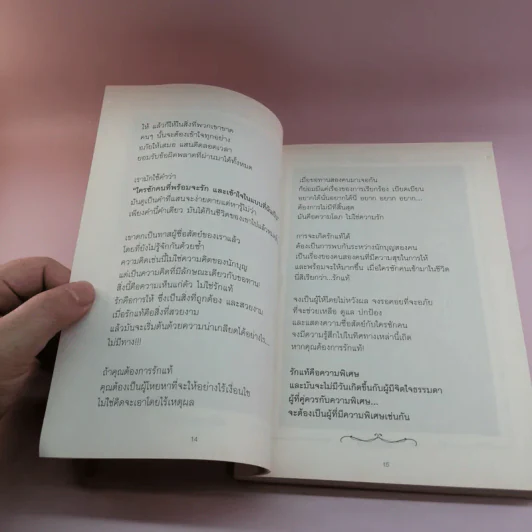 ให้ แล้วก็ให้ในสิ่งที่พวกเขาขาด
คนๆ นั้นจะต้องเข้าใจทุกอย่าง
อภัยให้เสมอ แสนดีตลอดเวลา
ยอมรับข้อผิดพลาดที่ผ่านมาได้ทั้งหมด
เรามักใช้คำว่า
"ใครซักคนที่พร้อมจะรัก และเข้าใจในแบบที่ฉัน
มันดูเป็นคำที่แสนจะง่ายดายแต่หารู้ไม่ว่า
เพียงคำนี้คำเดียว มันได้กินชีวิตของเขาไปแล้ว
เราตกเป็นทาสผู้ซื่อสัตย์ของเราแล้ว
โดยที่ยังไม่รู้จักกันด้วยซ้ำ
ความคิดเช่นนี้ไม่ใช่ความคิดของนักบุญ
แต่เป็นความคิดที่มีลักษณะเดียวกับขอทาน
สิ่งนี้คือความเห็นแก่ตัว ไม่ใช่รักแท้
รักคือการให้ ซึ่งเป็นสิ่งที่ถูกต้อง และสวยงาม
เมื่อรักแท้คือสิ่งที่สวยงาม
แล้วมันจะเริ่มต้นด้วยความน่าเกลียดได้อย่างไร...
ไม่มีทาง!!!
ถ้าคุณต้องการรักแท้
คุณต้องเป็นผู้ใหยหาที่จะให้อย่างไร้เงื่อนไข
ไม่ใช่คิดจะเอาโดยไร้เหตุผล
14
เมื่อขอทานสองคนมาเจอกัน
ก็ย่อมมีแต่เรื่องของการเรียกร้อง เบียดเบียน
อยากได้นั่นอยากได้นี่ อยาก อยาก อยาก...
ต้องการไม่มีที่สิ้นสุด
มันคือความโลภ ไม่ใช่ความรัก
การจะเกิดรักแท้ได้
ต้องเป็นการพบกันระหว่างนักบุญสองคน
เป็นเรื่องของคนสองคนที่มีความสุขในการให้
และพร้อมจะให้มากขึ้น เมื่อใครซักคนเข้ามาในชีวิต
นี่สิเรียกว่า...รักแท้
จงเป็นผู้ให้โดยไม่หวังผล จงรอคอยที่จะอภัย
ที่จะช่วยเหลือ ดูแล ปกป้อง
และแสดงความซื่อสัตย์กับใครซักคน
จงมีความรู้สึกไปในทิศทางเหล่านี้เถิด
หากคุณต้องการรักแท้!
รักแท้คือความพิเศษ
และมันจะไม่มีวันเกิดขึ้นกับผู้มีจิตใจธรรมดา
ผู้ที่คู่ควรกับความพิเศษ...
จะต้องเป็นผู้ที่มีความพิเศษเช่นกัน
15